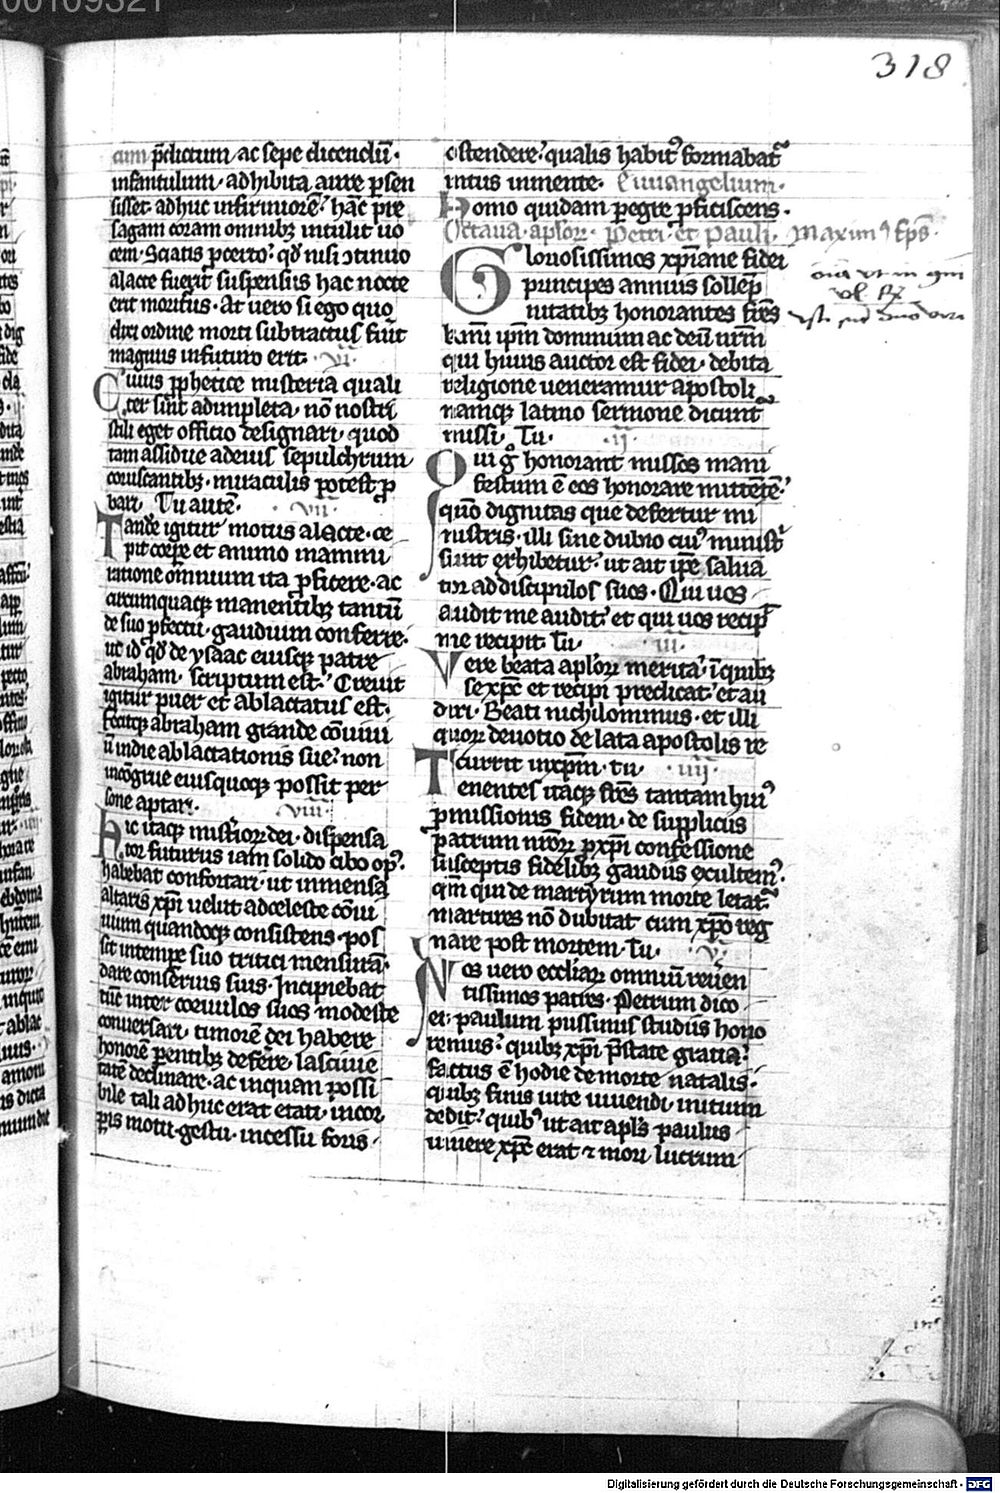 318
cum p̄dictum ac sepe dicendū·
infantulum· adhibita aure p̱sen
sisset· adhuc infirmiorē· hāc pre
sagam coram omnibꝫ intulit uo
cem· Sciatis ꝓcerto· qđ nisi ꝯtinuo
alacte fuerit suspensus hac nocte
erit moriturus· At uero si ego quo
dixi ordine morti subtractus fuīt
magnus infuturo erit· ·vi·
Cuius ꝓphetice misteria quali
ter sint adimpleta· nō nostri
stili eget officio designari· quod
tam assidue adeius sepulchrum
coruscantibꝫ· miraculis potest ꝓ
bari· Tu autē· ·vii·
Tande igitur motus alacte· ce
pit corpore et animo inammi
ratione omnium ita ꝓficere· ac
circumquacꝫ manentibꝫ tantū
de suo ꝓfectu· gaudium conferre·
ut id qđ de ysaac eiusqꝫ patre
abraham· scriptum est· Creuit
igitur puer et ablactatus est·
fecitqꝫ abraham grande cōuiuī
ū indie ablactationis sue· non
incōgrue eiusquoqꝫ possit per
sone aptari· ·viii·
Hic itaqꝫ mistrioꝝ dei· dispensa
tor futurus iam solido cibo opꝰ
habebat confortari· ut inmensa
altaris xp̄i uelut adceleste cōui
uium quandoqꝫ consistens· pos
sit intempe suo tritici mensurā·
dare conseruis suis· Incipiebat
tūc inter coeuulos suos modeste
conuersari· timorē dei habere
honorē p̱entibꝫ deferre· lasciuie
tatē declinare· ac inquan possi
bile tali adhuc erat etati· incor
p̱is motu· gestu· incessu foris
ostendere· qualis habitꝰ formabat᷒
intus inmente· Euuangelium·
Homo quidam pegre ꝓficiscens·
Octaua· aploꝝ· Petri· et Pauli· Maximꝰ Ep̄s·
Gloriosissimos xp̄iane fidei
principes annuis sollēp
nitatibꝫ honorantes frēs
karīmi ip̄m dominum ac deū nrm̄
qui huius auctor est fidei· debita
religione ueneramur apostoli
namqꝫ latino sermone dicunt᷒
missi· Tu· ·ii·
Qui g̊ honorant missos mani
festum ē eos honorare mittētē·
quō dignitas que defertur mi
nistris· illi sine dubio cuiꝰ ministri
sunt exhibetur· ut ait ip̄e salua
tor ad discipulos suos· Qui uos
audit me audit· et qui uos recip̄
me recipit· Tu· ·iii·
Vere beata aploꝝ merita· ī quibꝫ
se xp̄c et recipi predicat· et au
diri· Beati nichilominus· et illi
quoꝝ deuotio delata apostolis re
currit inxp̄m· tu· ·iiij·
Tenentes itaqꝫ frēs tantam huiꝰ
ꝓmissionis fidem· de suppliciis
patrum nr̄oꝝ ꝓxp̄i confessione
susceptis fidelibꝫ gaudiis exultemꝰ·
qm̄ qui de martyrum morte letat᷒
martires nō dubitat cum xp̄o reg
nare post mortem· Tu· ·v·
Nos uero eccliaꝝ omniū reueren
tissimos patres· Petrum dico
et· paulum piissimis studiis hono
remus· quibꝫ xp̄i p̄state gratia·
factus ē hodie de morte natalis·
quibꝫ finis uite uiuendi initium
dedit· quibꝰ ut ait apl̄s paulus
uiuere xp̄c erat ⁊ mori lucrum
Digitalisierung gefördert durch die Deutsche Forschungsgemeinschaft · DFG